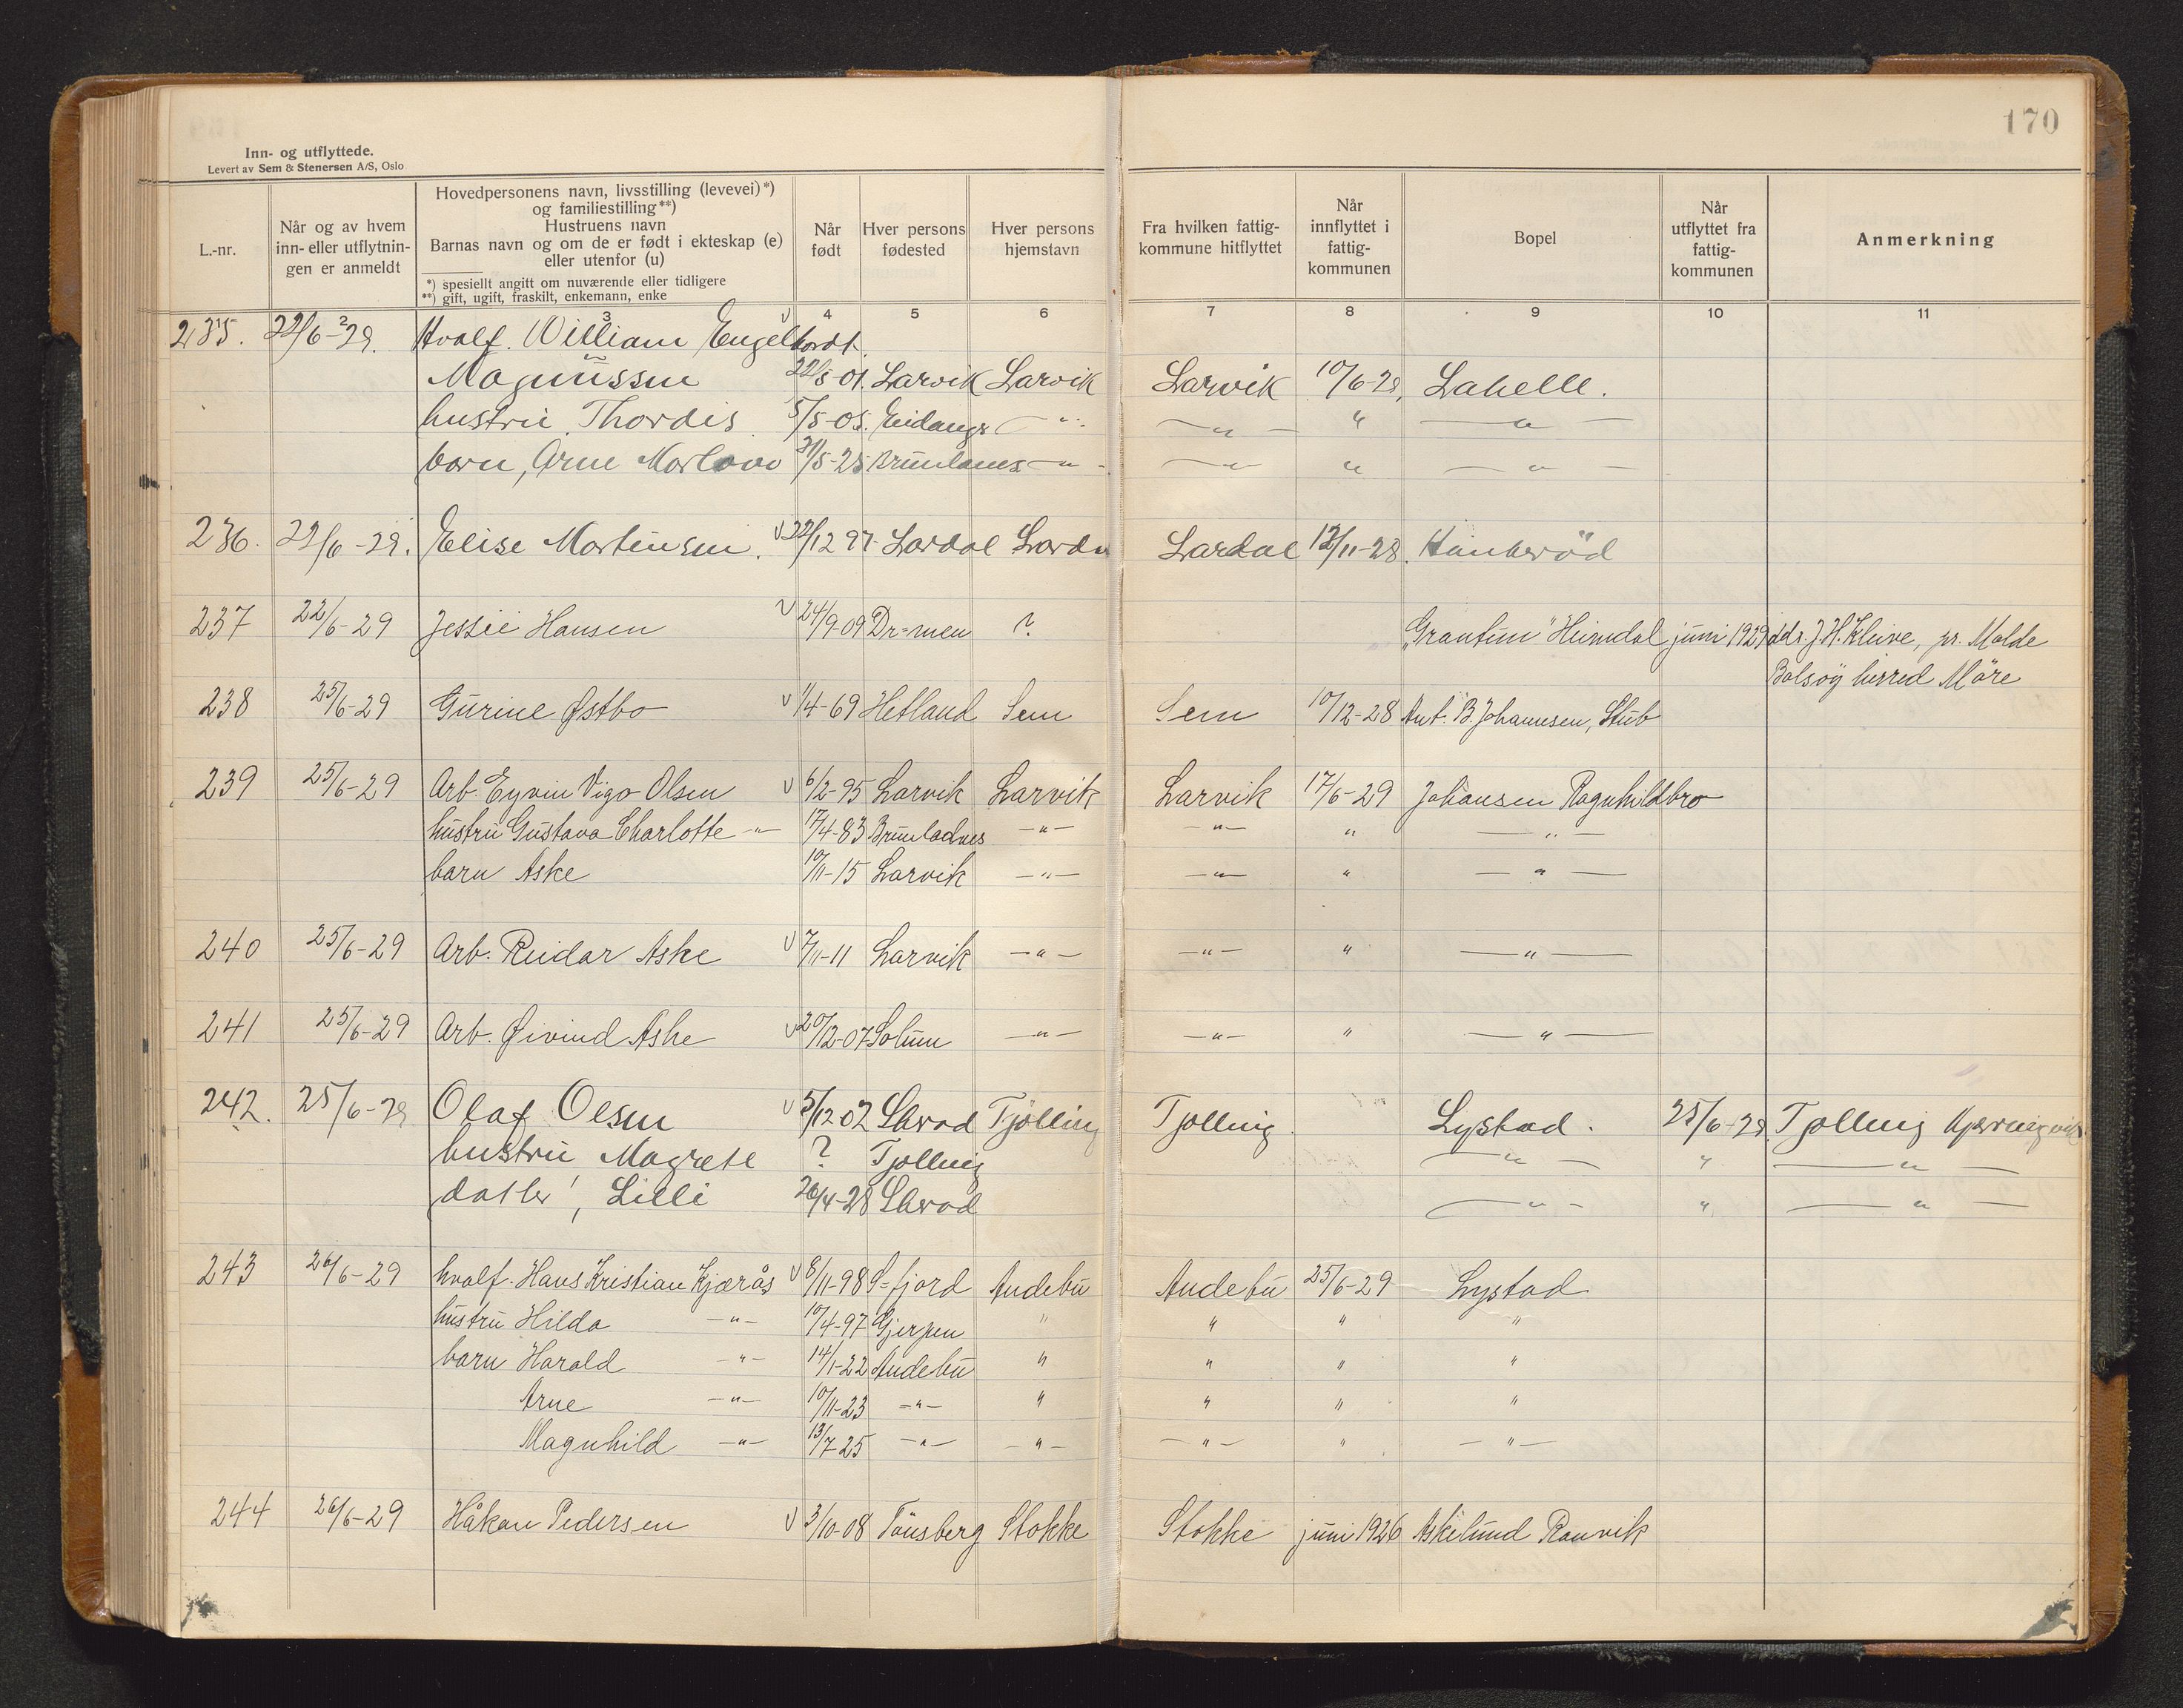 170
Inn- og utflyttede.
Levert av Sem & Stenersen A/S, Oslo
L.-nr.
Når og av hvem inn- eller utflytningen er anmeldt
Hovedpersonens navn, livsstilling (levevei)*)
og familiestilling**)
Hustruens navn
Barnas navn og om de er født i ekteskap (e)
eller utenfor (u)
*) spesiellt angitt om nuværende eller tidligere
**) gift, ugift, fraskilt, enkemann, enke
Når født
Hver persons fødested
Hver persons hjemstavn
Fra hvilken fattigkommune hitflyttet
Når innflyttet i fattigkommunen
Bopel
Når utflyttet fra fattigkommunen
Anmerkning
2 3 4 5 6 7 8 9 10 11
235. 22/6-29. Hvalf. William Engelhardt
Magnussen 22/8-01. Larvik Larvik Larvik 10/6-29, Lahelle.
hustru Thordis 5/5-05. Eidanger — " — — " — " — " —
barn, Arne 31/5-25 Brunlanes — " — — " — " — " —
236. 22/6-29. Elise Martinsen. 22/12 97 Lardal Lardal Lardal 12/11-28.
237 22/6-29 Jessie Hansen 24/9-09 Dr=men ? "Grantun" Heimdal juni 1929 adr. J. H. Kleive, pr. Molde
Bolsøy herred Möre
238 25/6-29 Gurine Østbo 1/4-69 Hetland Sem Sem 10/12-28 Ant. B. Johannesen, Stub
239 25/6-29 Arb. Eyvin Vigo Olsen 6/2-95 Larvik Larvik Larvik 17/6-29 Johansen Ragnhildbro
hustru Gustava Charlotte — " — 17/4-83 Brunladnes — " — — " — " — " —
barn Aske 10/11-15 Larvik — " — — " — " — " —
240 25/6-29 Arb. Reidar Aske 7/11-11 Larvik — " — — " — " — " —
241 25/6-29 Arb. Øivind Aske 20/12-07 Solum — " — — " — " — " —
242. 25/6-29 Olaf Olsen 5/12 02 Tjölling Tjølling Lystad. 25/6-29 Tjølling
hustru Magrete ? Tjølling — " — " — " —
datter, Lilli 26/4-28 — " — " — " —
243 26/6-29 hvalf. Hans Kristian Kjærås 8/11-98 S=fjord Andebu Andebu 25/6-29 Lystad
hustru Hilda — " — 10/4-97 Gjerpen " " " "
barn Harald — " — 14/1-22 Andebu " " " "
Arne — " — 10/11-23 — " — " " " "
Magnhild — " — 13/7-25 — " — — " — — " — " — " —
244 26/6-29 Håkon Pedersen 3/10-08 Tønsberg Stokke Stokke juni 1926 Askelund Ranvik